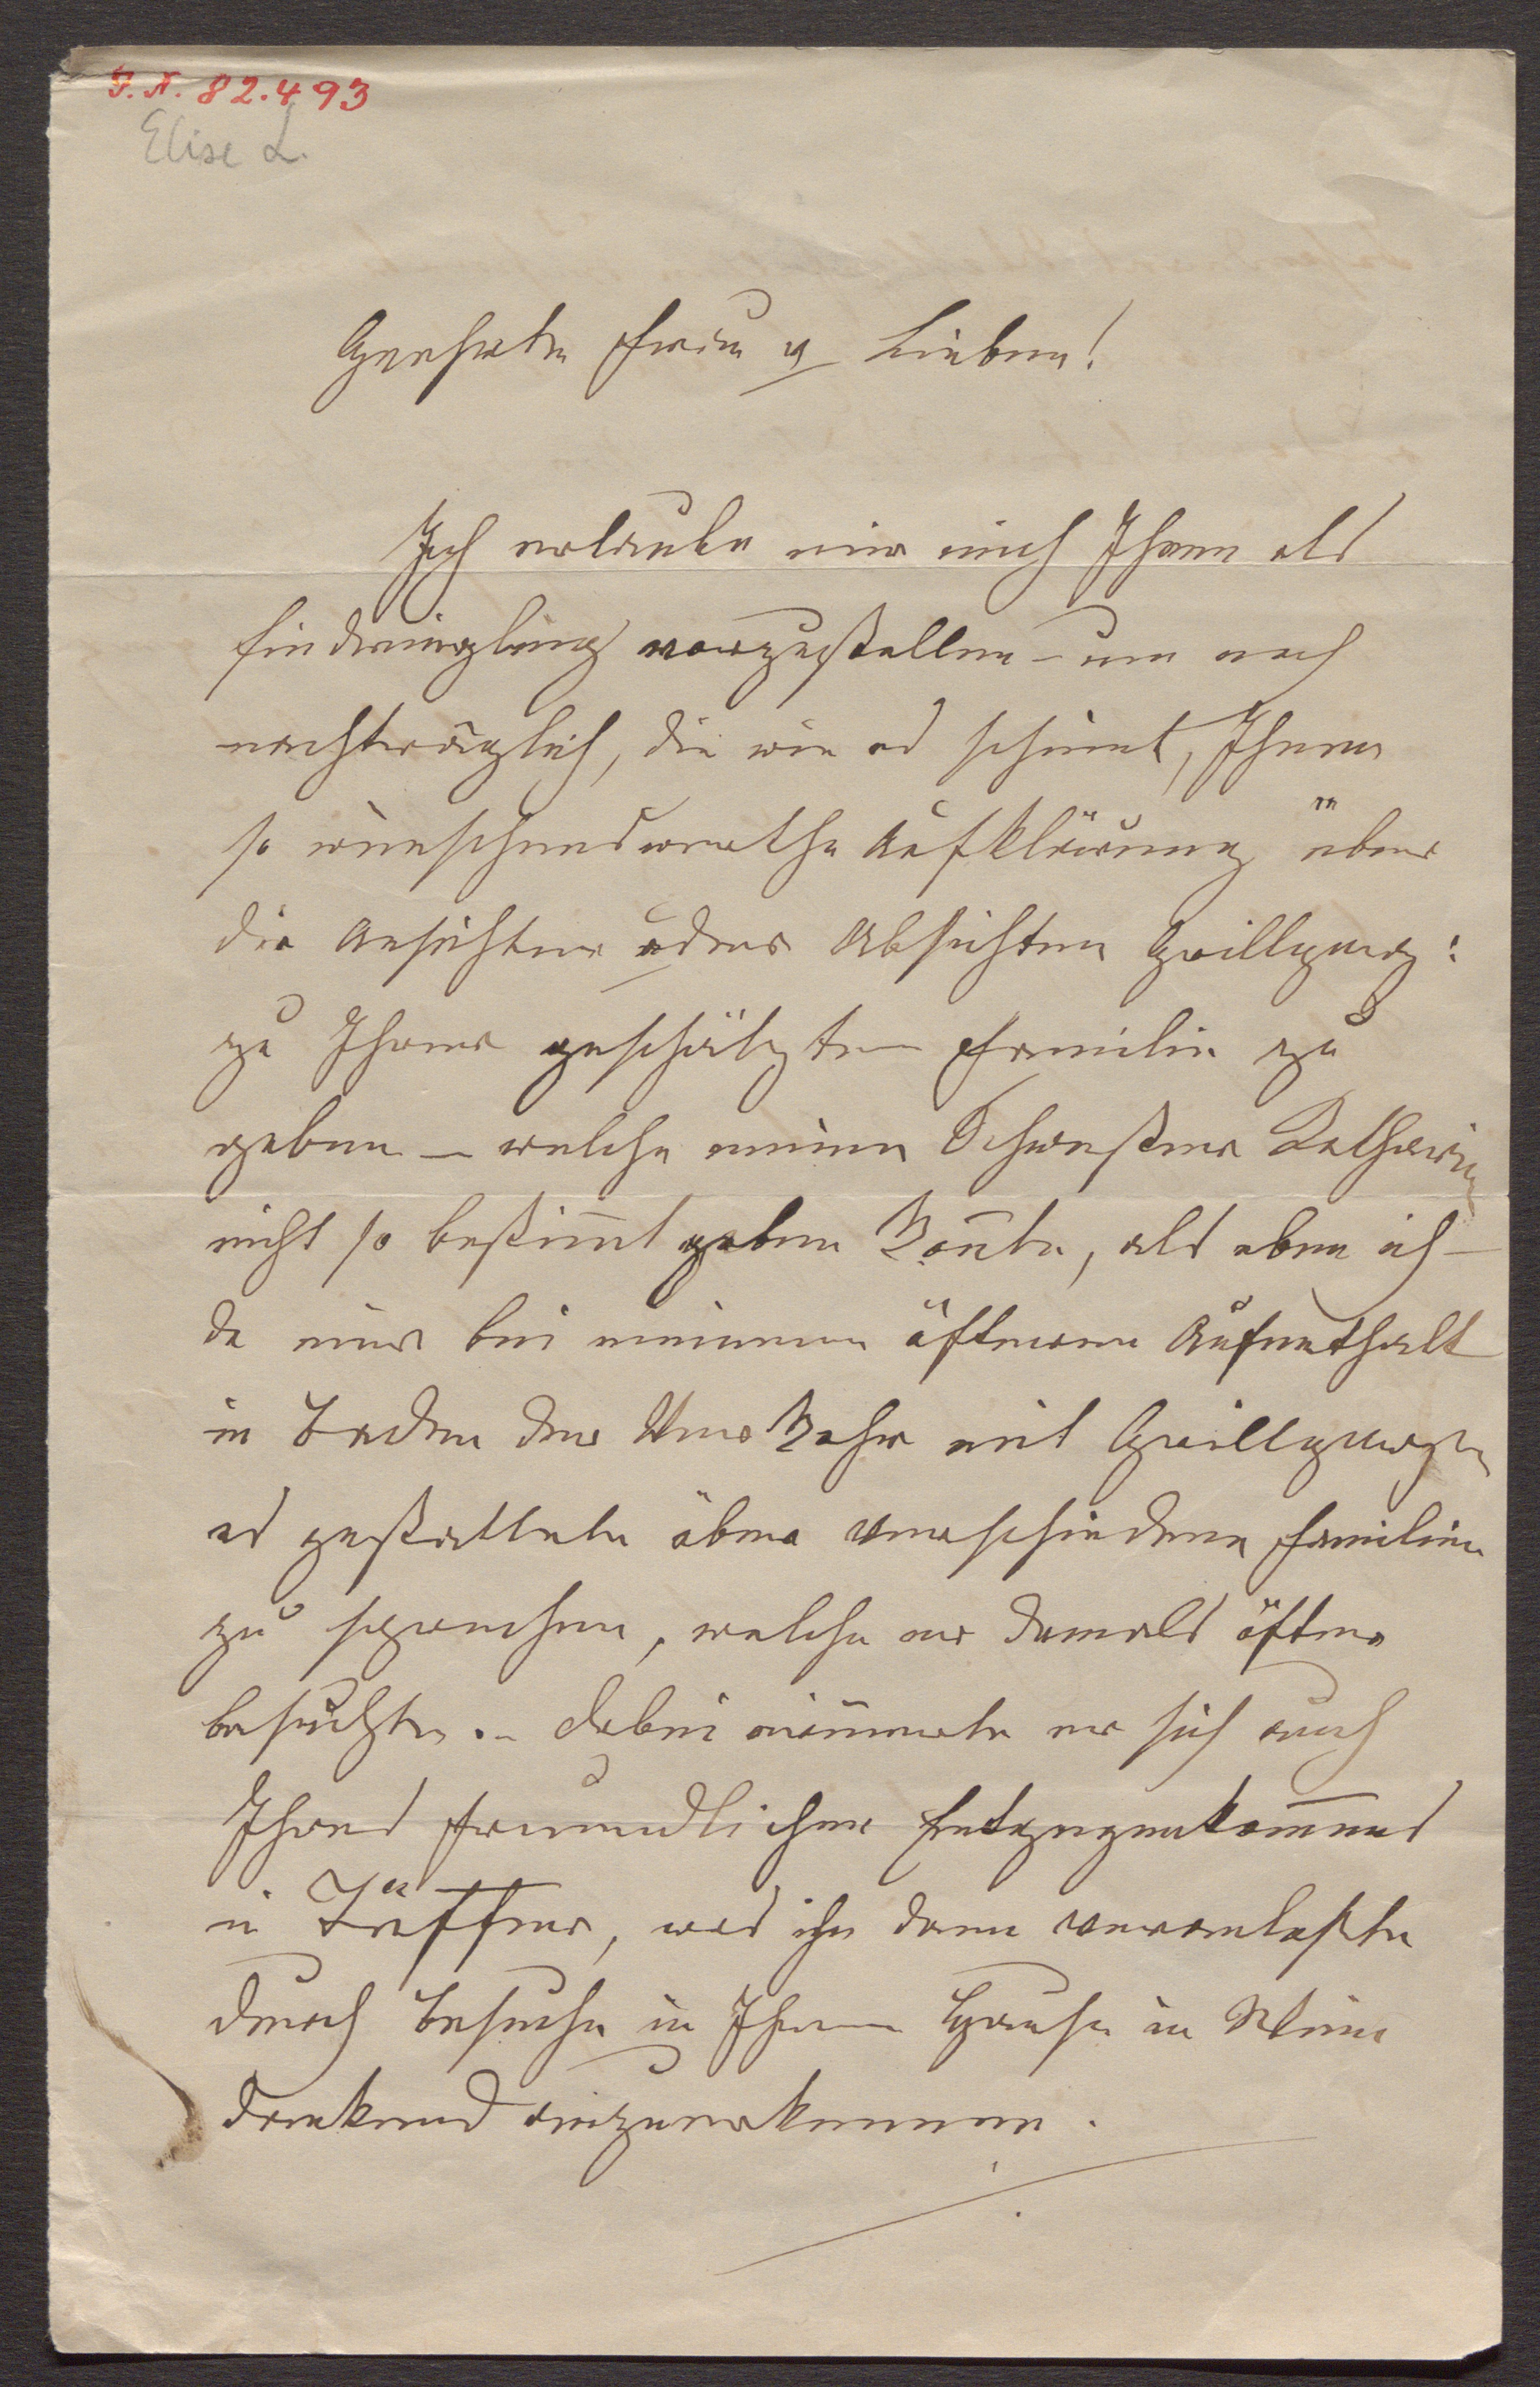 I.N. 82.493
Elise L.
Geehrte Frau v Lieben!
Ich erlaube mir mich Ihnen als
Eindringling vorzustellen – um auch
nachträglich, die wie es scheint, Ihnen
so wünschenswerthe Aufklärung über
die Ansichten oder Absichten Grillparz:
zu Ihrer geschätzten Familie zu
geben – welche meine Schwester Katharina
nicht so bestim̅t geben kon̅te, als eben ich –
da mir bei meinem öfteren Aufenthalt
in Baden der Verkehr mit Grillparzer
es gestattete über verschiedene Familien
zu sprechen, welche er damals öfter
besuchte. – dabei erinnerte er sich auch
Ihres freundlichen Entgegenkom̅ens
in Tüffer, was ihn dann veranlaßte
durch Besuche in Ihrem Hause in Wien
dankend anzuerkennen.